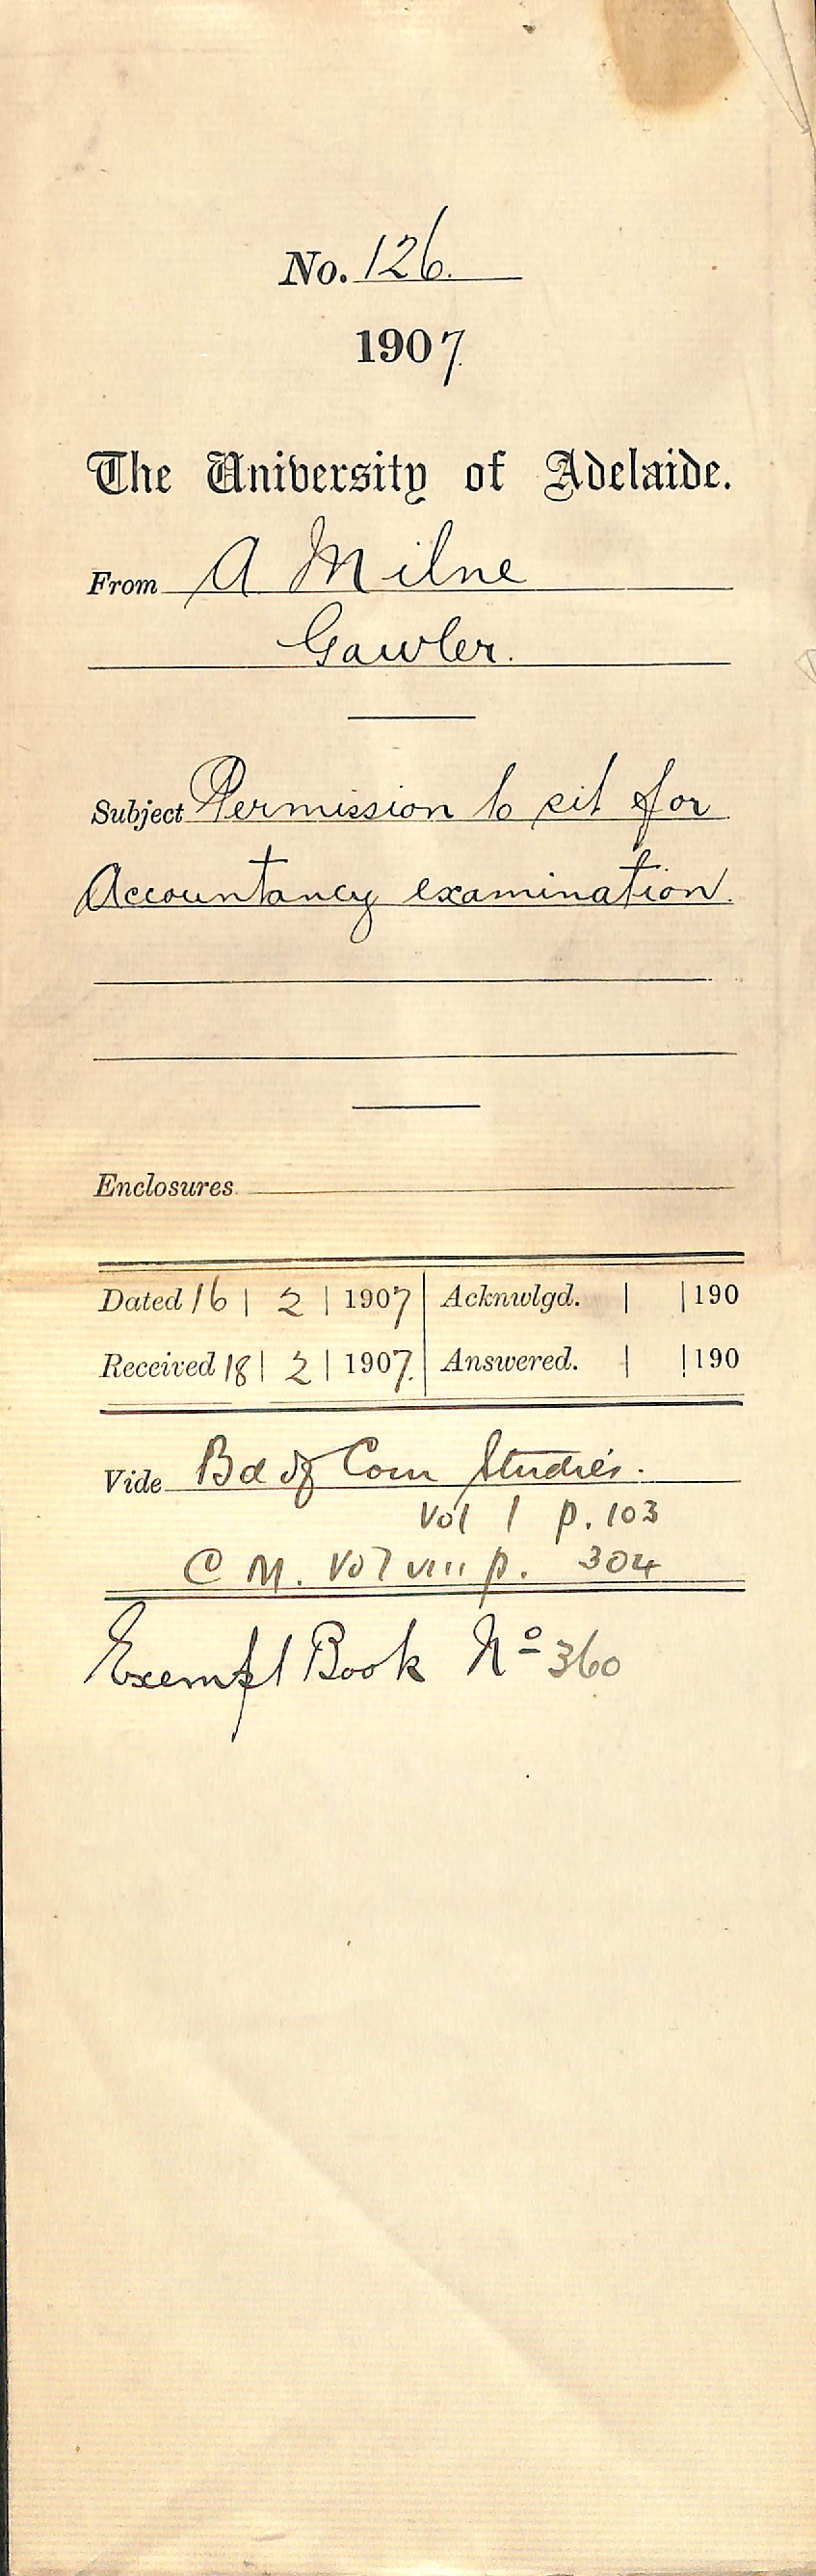 No. 126.
1907
The University of Adelaide.
From A Milne
Gawler.
Subject Permission to sit for
Accountancy examination.
Enclosures
Dated 16 | 2 | 1907 | Acknwlgd. | | 190
Received 18 | 2 | 1907. | Answered. | | 190
Vide Bd of Com Studies.
Vol 1 p. 103
C M. Vol VIII p. 304
Exempt Book No 360